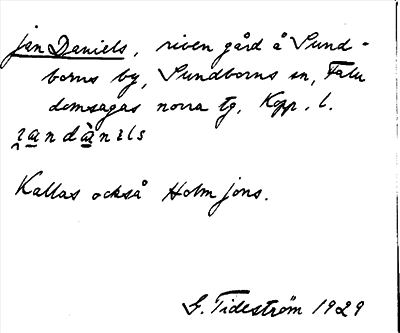 Jan Daniels, riven gård å Sund-
borns by, Sundborns sn, Falu
domsagas norra tg, Kopp. l.
Kallas också Holm jons.
G. Tideström 1929